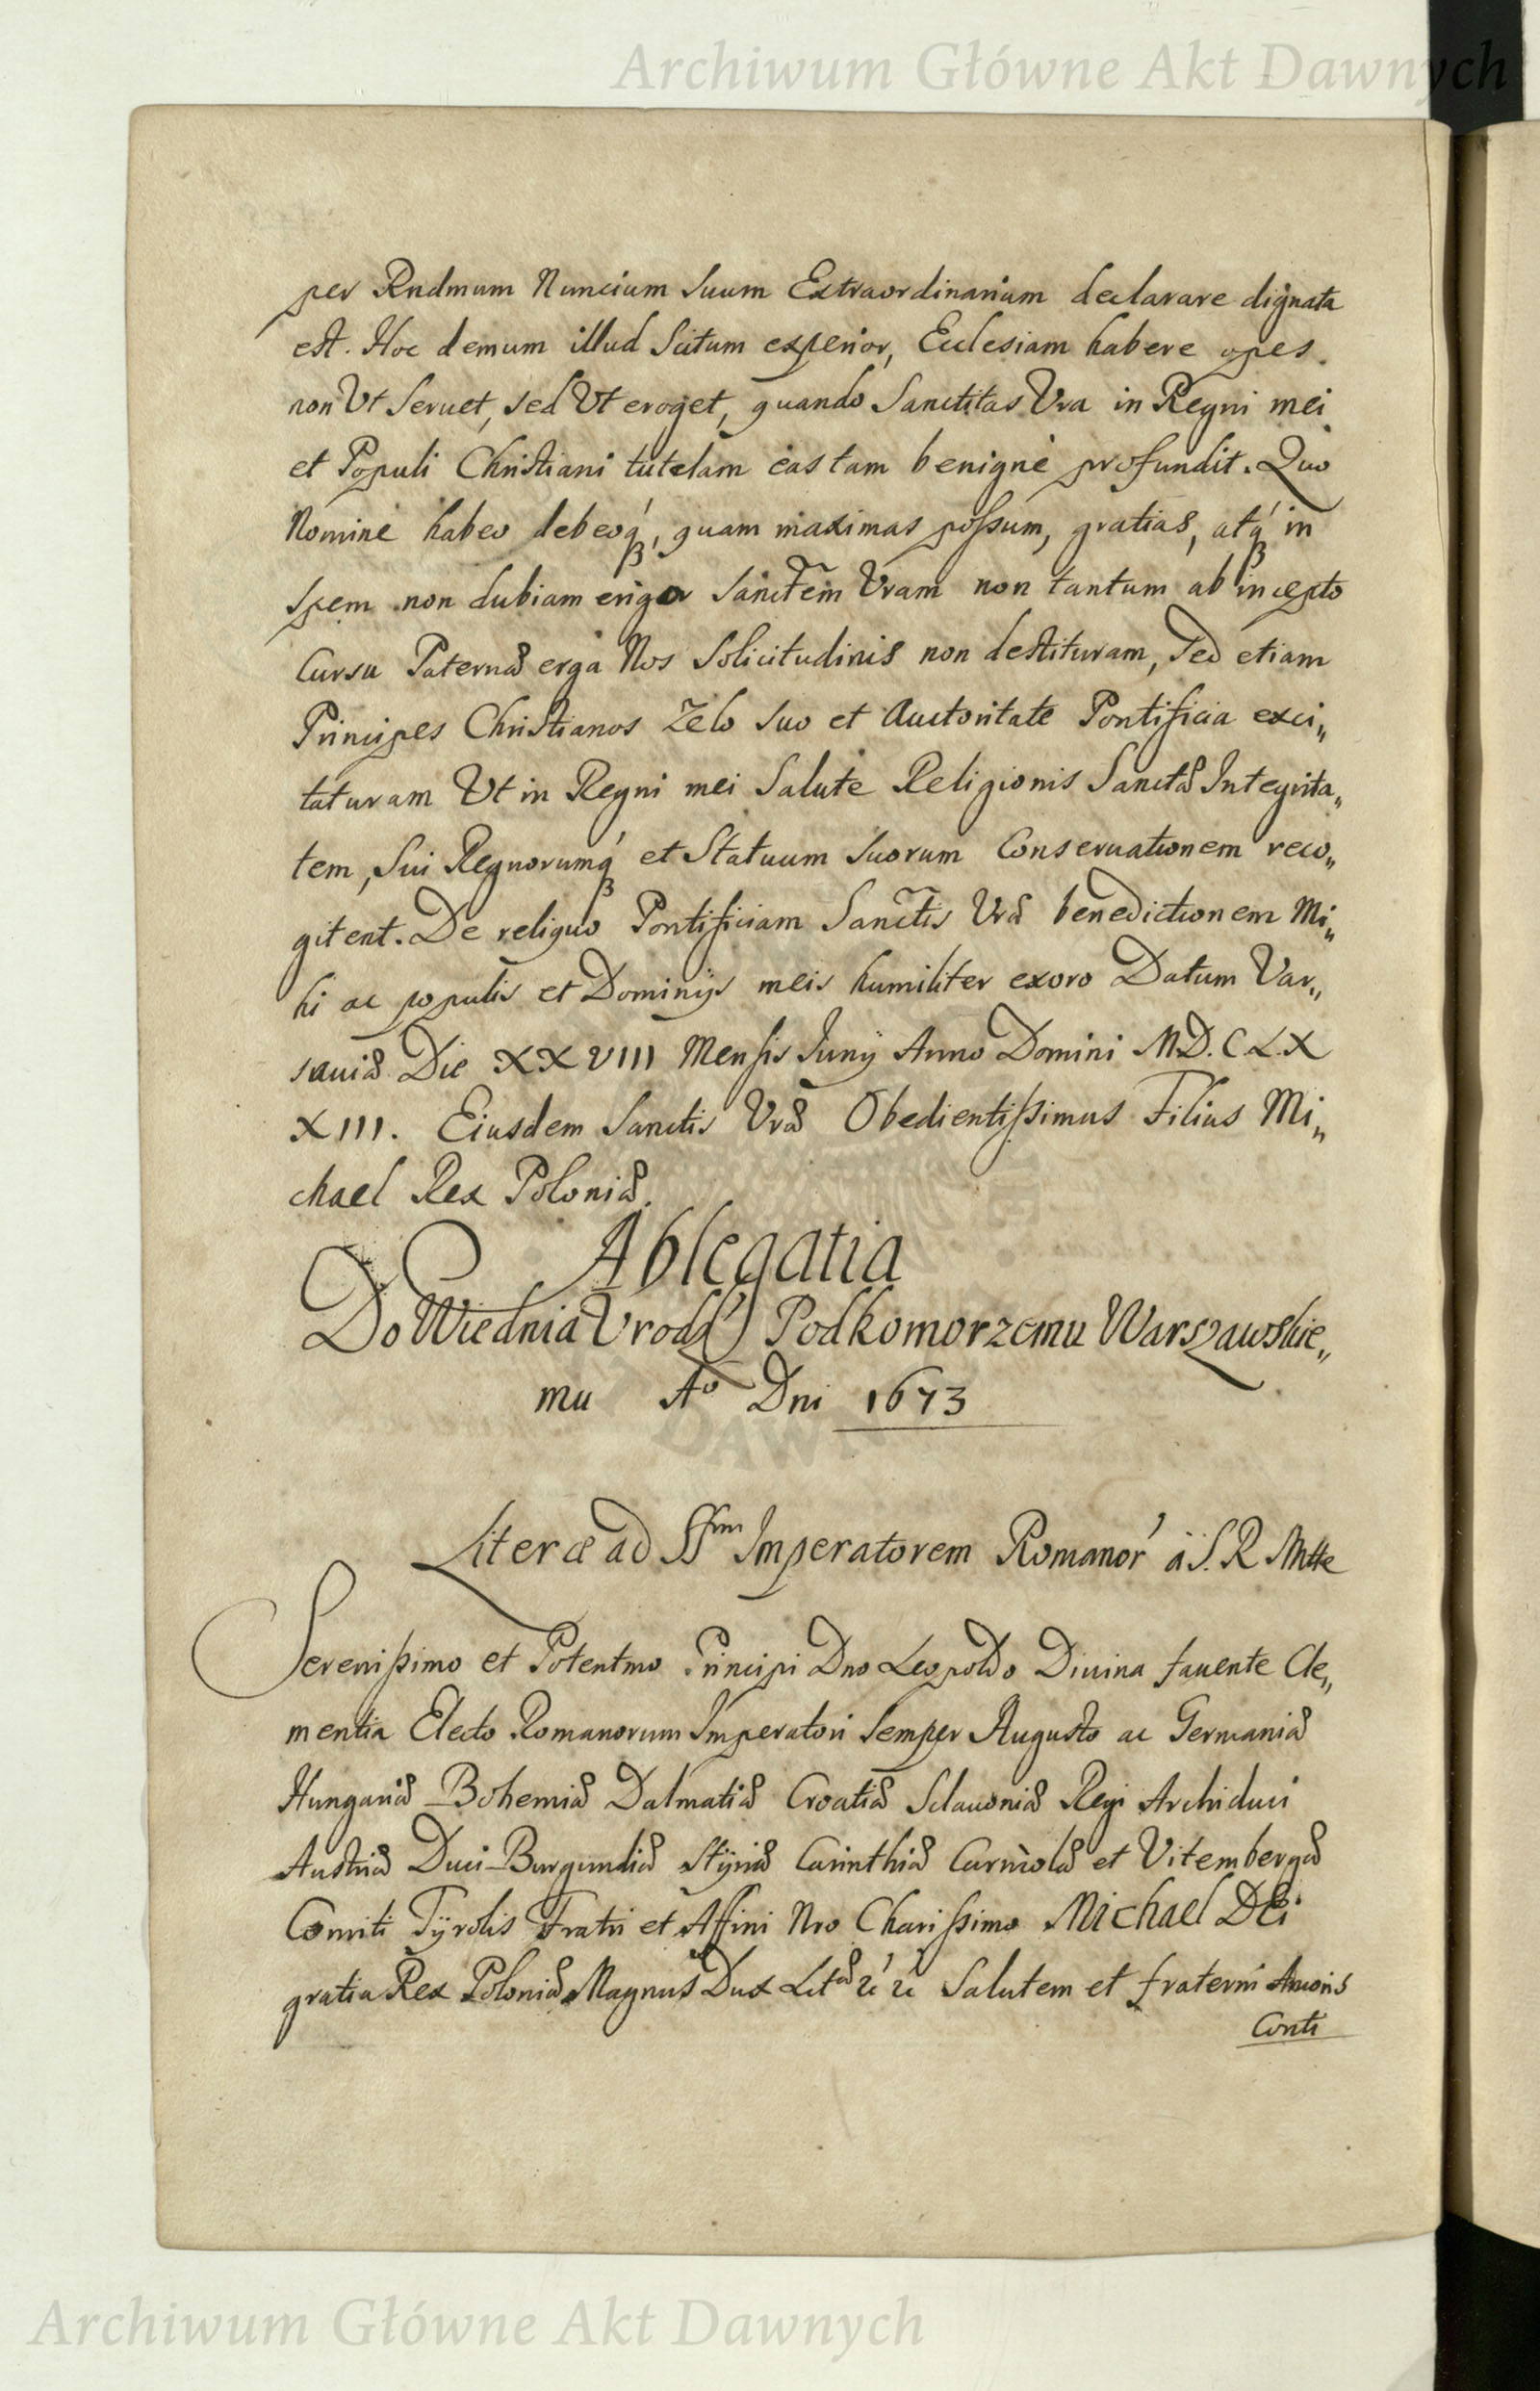 Archiwum Główne Akt Dawnych
per Rndmum Nuncium Suum Extraordinarium declarare dignata
est. Hoc demum illud Scitum experior, Ecclesiam habere opes
non Ut Seruet, sed Ut eroget, quando Sanctitas Vra in Regni mei
et Populi Christiani tutelam eas tam benigné profundit. Quo
Nomine habeo debeoq́, quam maximas possum, gratias, atq́ in
Spem non dubiam erigor Sanctem Vram non tantum ab incepto
Cursu Paternæ erga Nos Solicitudinis non destituram, Sed etiam
Principes Christianos Zelo Suo et Auctoritate Pontificia exci„
taturam Ut in Regni mei Salute Religionis Sanctæ Integrita„
tem, Sui Regnorumq́ et Statuum Suorum Conseruationem reco„
gitent. De reliquo Pontificiam Sanctis Vræ benedictionem Mi„
hi ac populis et Dominijs meis humiliter exoro Datum Var„
sauiæ Die XXVIII Mensis Junij Anno Domini M.D.C.L.X
XIII. Eiusdem Sanctis Vræ Obedientissimus Filius Mi„
chael Rex Poloniæ.
Ablegatia
Do Wiednia Urodz Podkomorzemu Warszawskie„
mu Aº Dni 1673
Literæ ad SSmm Imperatorem Romanor' à S. R Mtte
Serenissimo et Potentmo Principi Dno Leopoldo Diuina fauente Cle„
mentia Electo Romanorum Imperatori Semper Augusto ac Germaniæ
Hungariæ Bohemiæ Dalmatiæ Croatiæ Sclauoniæ Regi Archiduci
Austriæ Duci Burgundiæ Stijriæ Carinthiæ Carniolæ et Vitembergæ
Comiti Tÿrolis Fratri et Affini Nro Charissimo Michael DEi
gratia Rex Poloniæ Magnus Dux Litæ &c &c Salutem et fraterni Amoris
Conti
Archiwum Główne Akt Dawnych